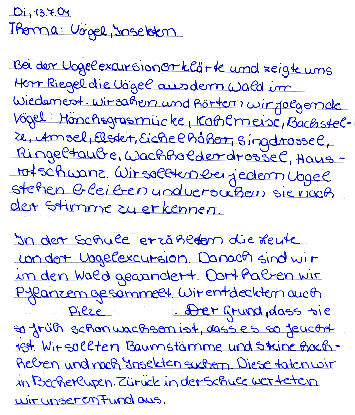 Di, 13.7.04
Thema: Vögel, Insekten
Bei der Vogelexcursion erklärte und zeigte uns
Herr Riegel die Vögel aus dem Wald im
Wiedenest. Wir sahen und hörten wir folgende
Vögel: Mönchsgrasmücke, Kohlmeise, Bachstel-
ze, Amsel, Elster, Eichelhäher, Singdrossel,
Ringeltaube, Wachholderdrossel, Haus-
rotschwanz. Wir sollten bei jedem Vogel
stehen bleiben und versuchen sie nach
der Stimme zu erkennen.
In der Schule erzählten die Leute
von der Vogelexcursion. Danach sind wir
in den Wald gewandert. Dort haben wir
Pflanzen gesammelt. Wir entdeckten auch
Pilze. Der Grund, dass sie
so früh schon wachsen ist, dass es so feucht
ist. Wir sollten Baumstämme und Steine hoch-
heben und nach Insekten suchen. Diese taten wir
in Becherlupen. Zurück in der Schule werteten
wir unseren Fund aus.